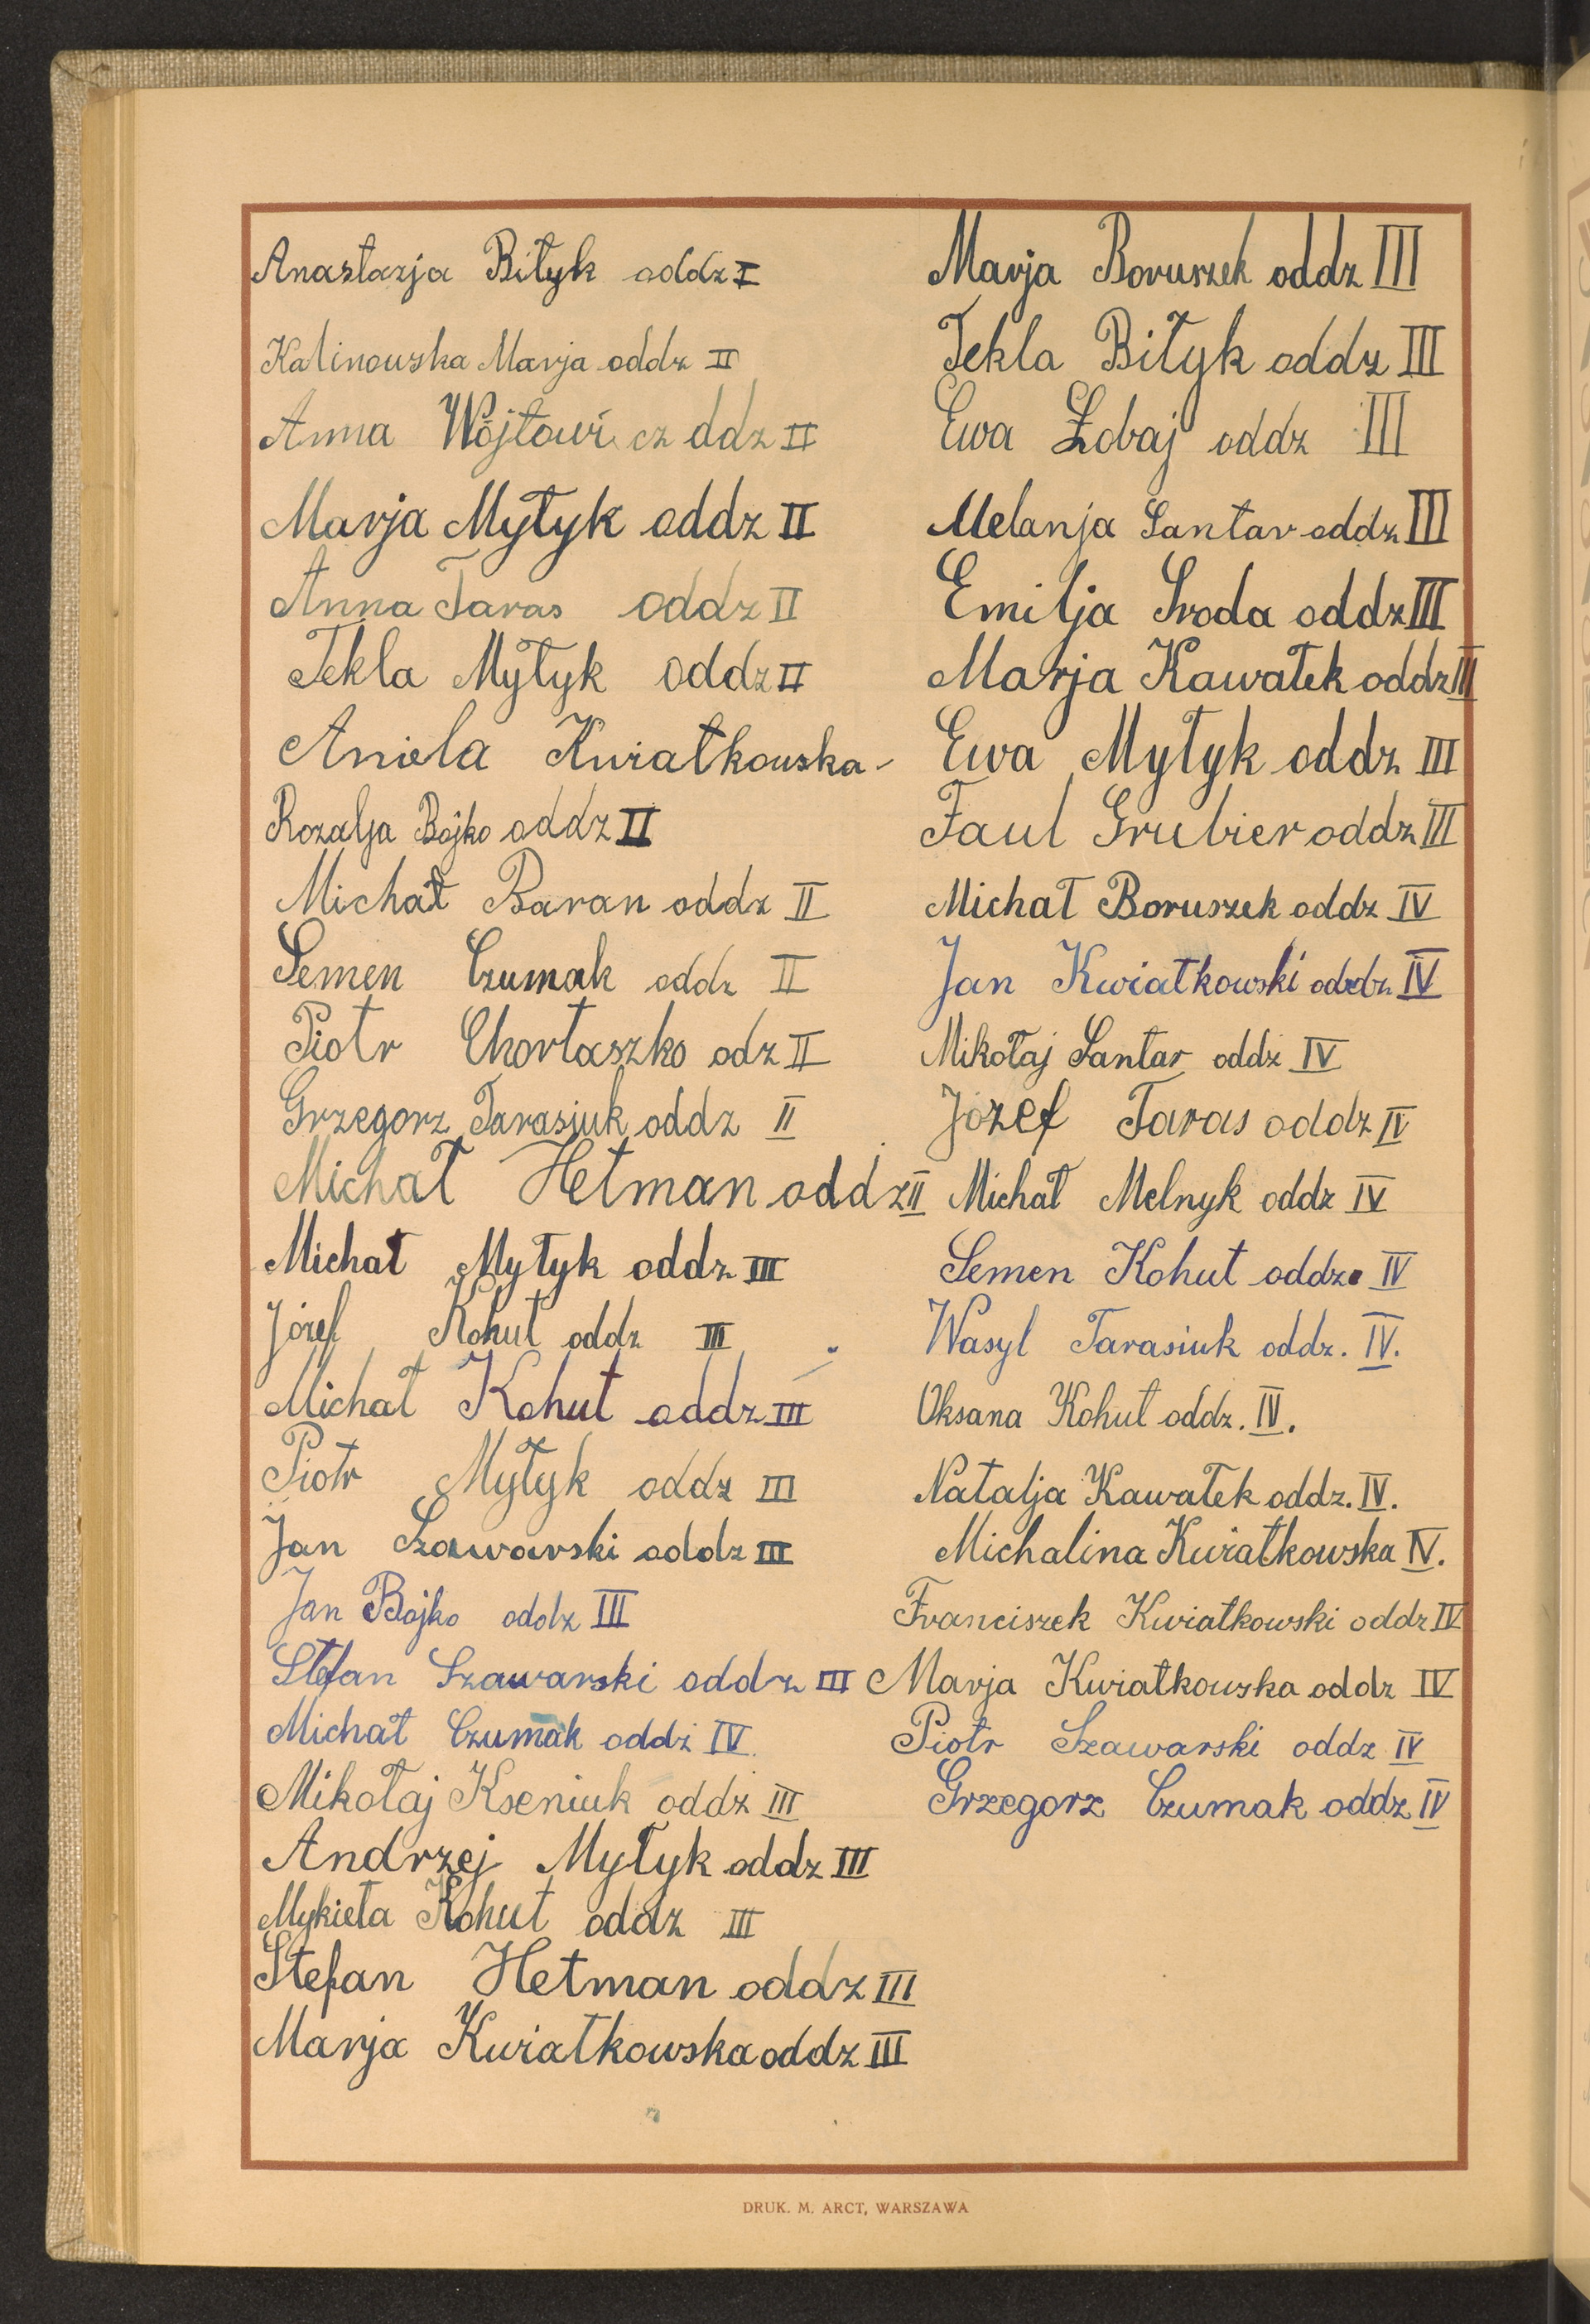 Anastazja Biłyk oddz I
Kalinowska Marja oddz II
Anna Wójtowicz ddz II
Marja Mytyk oddz II
Anna Taras oddz II
Tekla Mytyk oddz II
Aniela Kwiatkowska -
Rozalja Bojko oddz II
Michał Baran oddz II
Semen Czumak oddz II
Piotr Chortaszko odz II
Grzegorz Tarasjuk oddz II
Michał Hetman oddz II
Michał Mytyk oddz III
Józef Kohut oddz III
Michał Kohut oddz III
Piotr Mytyk oddz III
Jan Szawarski oddz III
Jan Bojko oddz III
Stefan Szawarski oddz III
Michał Czumak oddz IV
Mikołaj Kseniuk oddz III
Andrzej Mytyk oddz III
Mykieta Kohut oddz III
Stefan Hetman oddz III
Marja Kwiatkowska oddz III
Marja Boruszek oddz III
Tekla Biłyk oddz III
Ewa Łobaj oddz III
Melanja Santar oddz III
Emilja Sroda oddz III
Marja Kawałek oddz III
Ewa Mytyk oddz III
Faul Grubier oddz III
Michał Boruszek oddz IV
Jan Kwiatkowski oddz IV
Mikołaj Santar oddz IV
Jozef Taras oddz IV
Michał Melnyk oddz IV
Semen Kohut oddz. IV
Wasyl Tarasiuk oddz. IV.
Oksana Kohut oddz. IV.
Natalja Kawałek oddz. IV.
Michalina Kwiatkowska IV.
Franciszek Kwiatkowski oddz IV
Marja Kwiatkowska oddz IV
Piotr Szawarski oddz IV
Grzegorz Czumak oddz IV
DRUK. M. ARCT, WARSZAWA